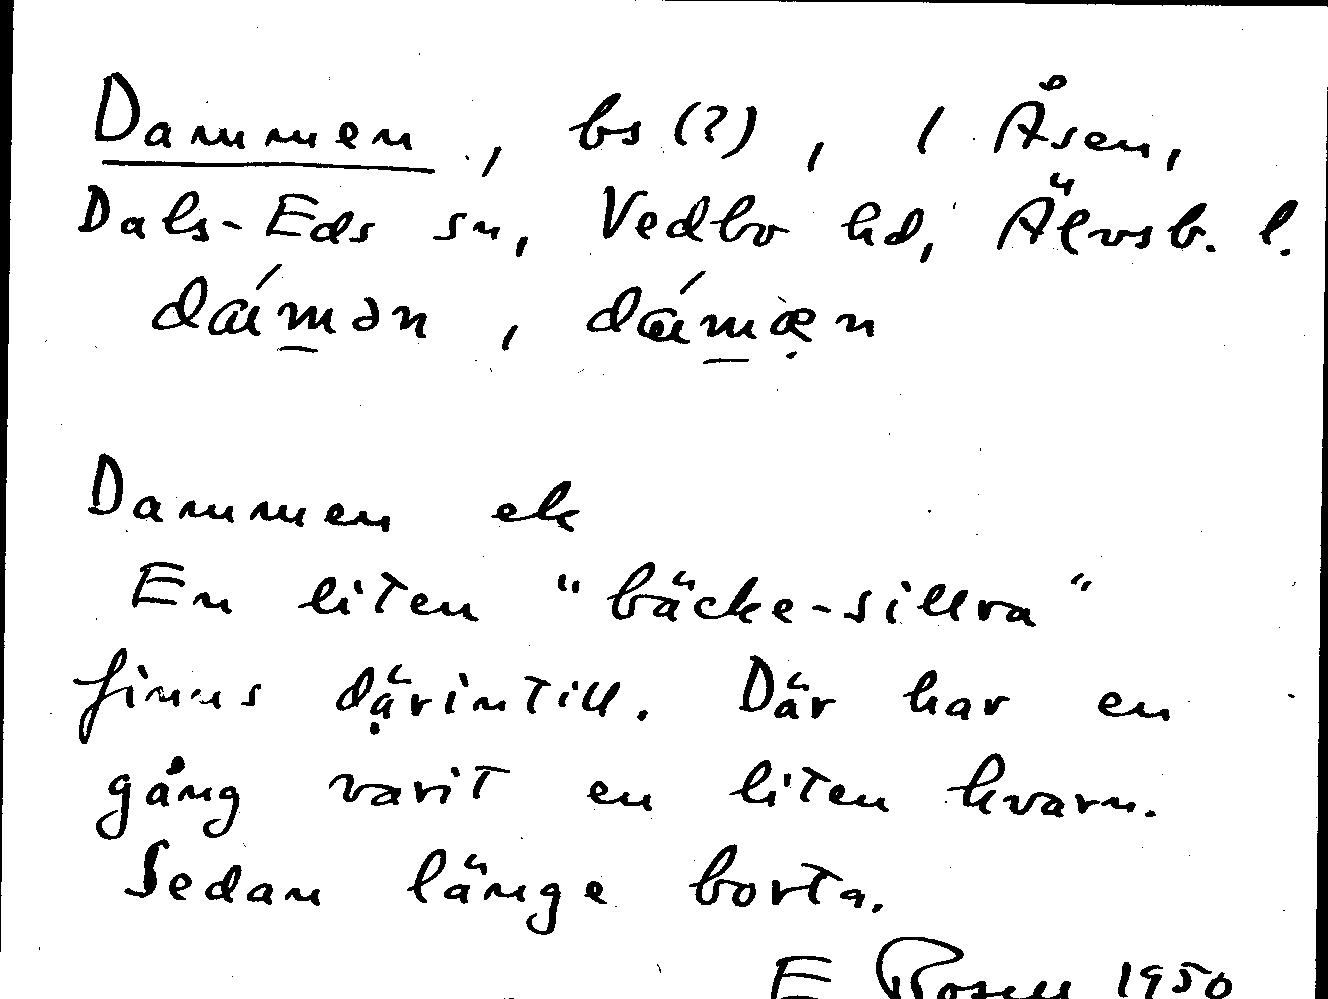 Dammen, bs (?), i Åsen,
Dals-Eds sn, Vedbo hd, Älvsb. l.
dámən, dámæn
Dammen ek
En liten "bäcke-sillra"
finns därintill. Där har en
gång varit en liten kvarn.
Sedan länge borta.
E Rosell 1950